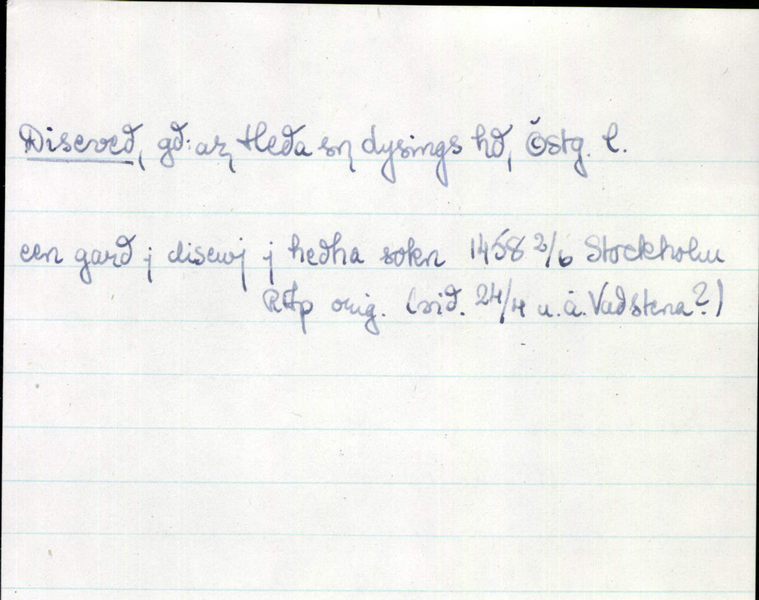 Diseved, gd:ar, Heda sn, dysings hd, Östg. l.
een gard j disewj j hedha sokn 1458 2/6 Stockholm
RAp orig. (vid. 24/4 u.å. Vadstena?)